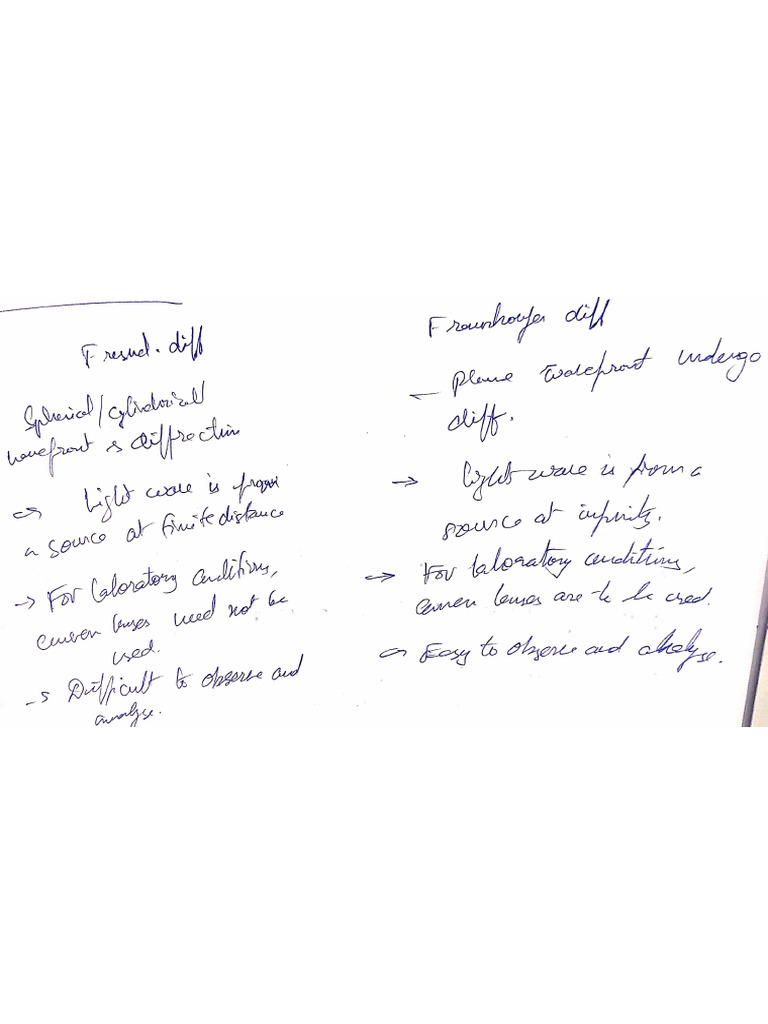 Fresnel. diff
Spherical/cylindrical
wavefront is diffraction
→ Light wave is from
a source at finite distance
→ For laboratory conditions,
convex lenses need not be
used.
→ Difficult to observe and
analyse.
Fraunhoufer diff
– Plane wavefront undergo
diff.
→ light wave is from a
source at infinity.
→ For laboratory conditions,
convex lenses are to be used.
→ Easy to observe and analyse.